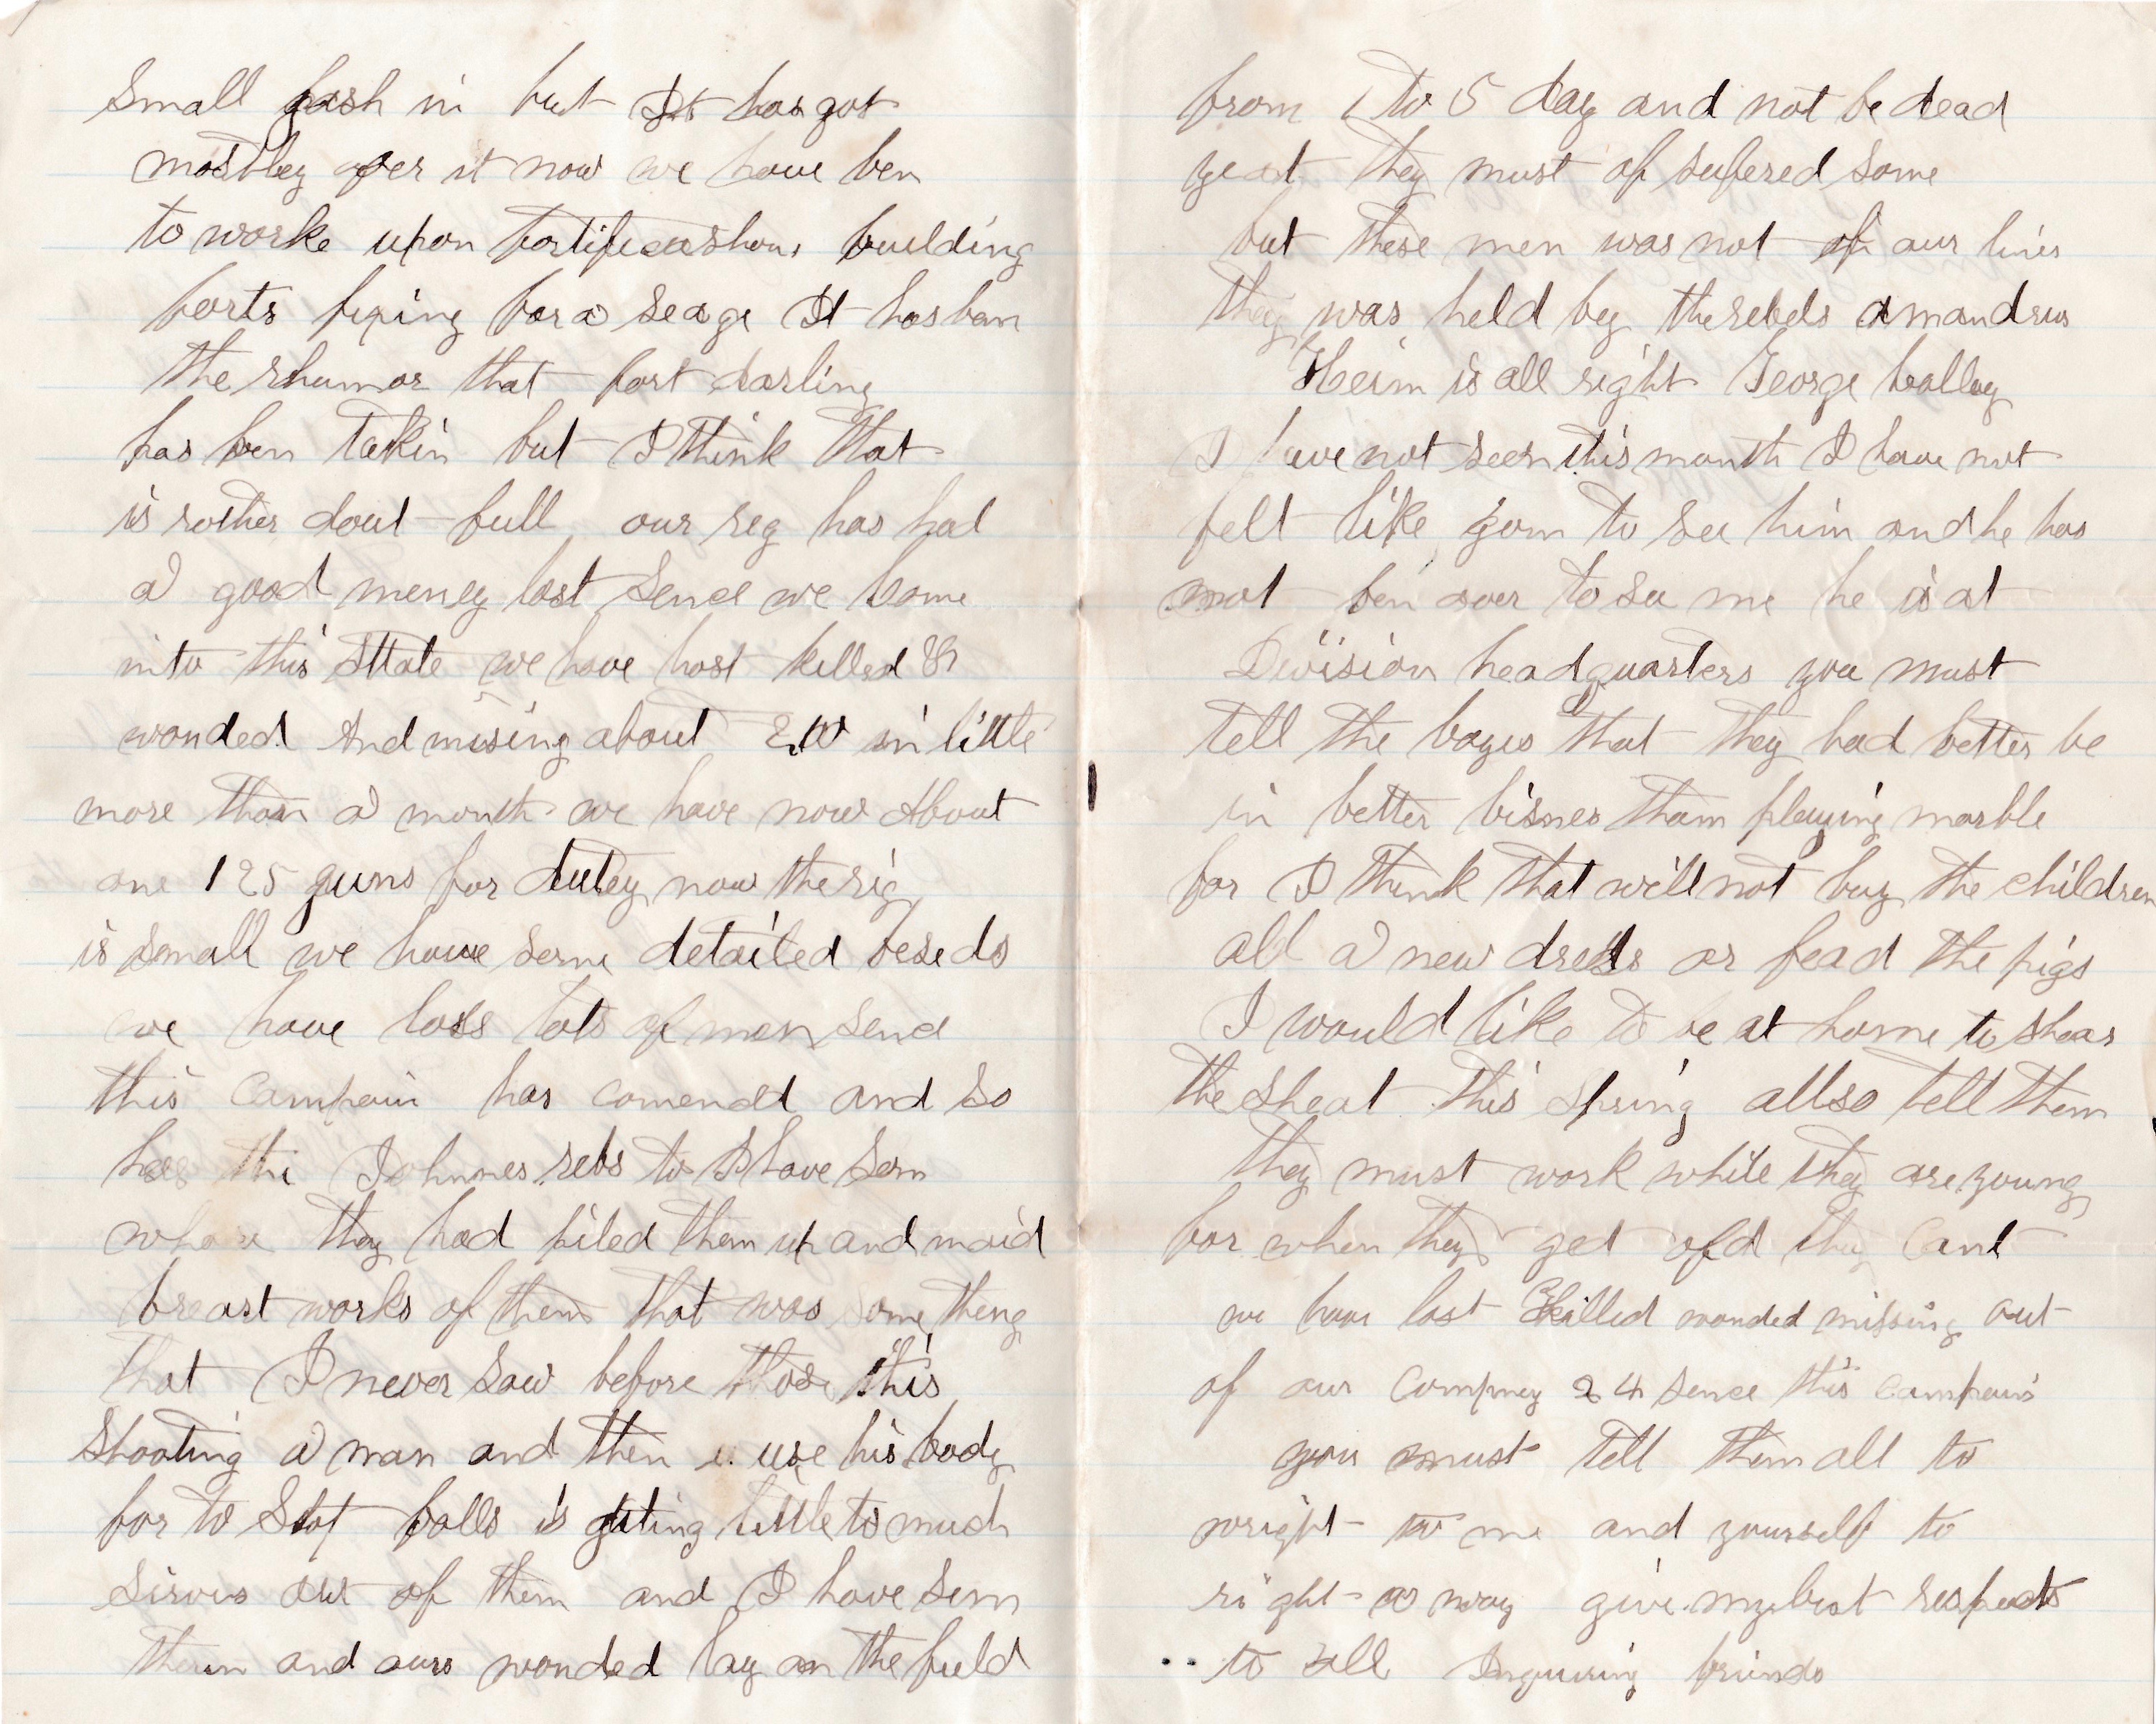 Small gash in but It has got
mostley over it now we have ben
to worke upon fortificashons building
forts fixing for a seage It has ban
the rhumor that fort darling
has ben takin but I think that
is rother dout full our reg has had
a good meney lost sence we come
into this sttate we have lost killed
wonded And mising about 200 in little
more than a month we have now About
one 125 guns for dutey now the rig
is small we have some detailed beseds
we have loss lots of men sence
this Campain has comencd and so
has the Johnnes rebs to I have seen
whare they had piled them up and maid
breast works of them that was some theng
that I never saw before those this
shooting a man and then use his body
for to stop balls is geting little to much
sirves out of them and I have seen
them and ours wonded lay on the field
from 1 to 5 day and not be dead
yeat they must of sufered some
but these men was not in our lines
they was held by the rebels amandrus
Heim is all right George
I have not seen this month I have not
felt like goin to see him and he has
not ben over to see me he is at
Division headquarters you must
tell the boyes that they had better be
in better bisnes tham playing marble
for I think that will not buy the children
all a new dress or fead the pigs
I would like to be at home to shear
the sheat this spring allso tell them
they must work while they are young
for when they get old they Cant
we have lost killed wonded missing out
of our Compney 24 sence this campain
you must tell them all to
wright to me and yourself to
right a way give my best respects
to all Inquiring friends